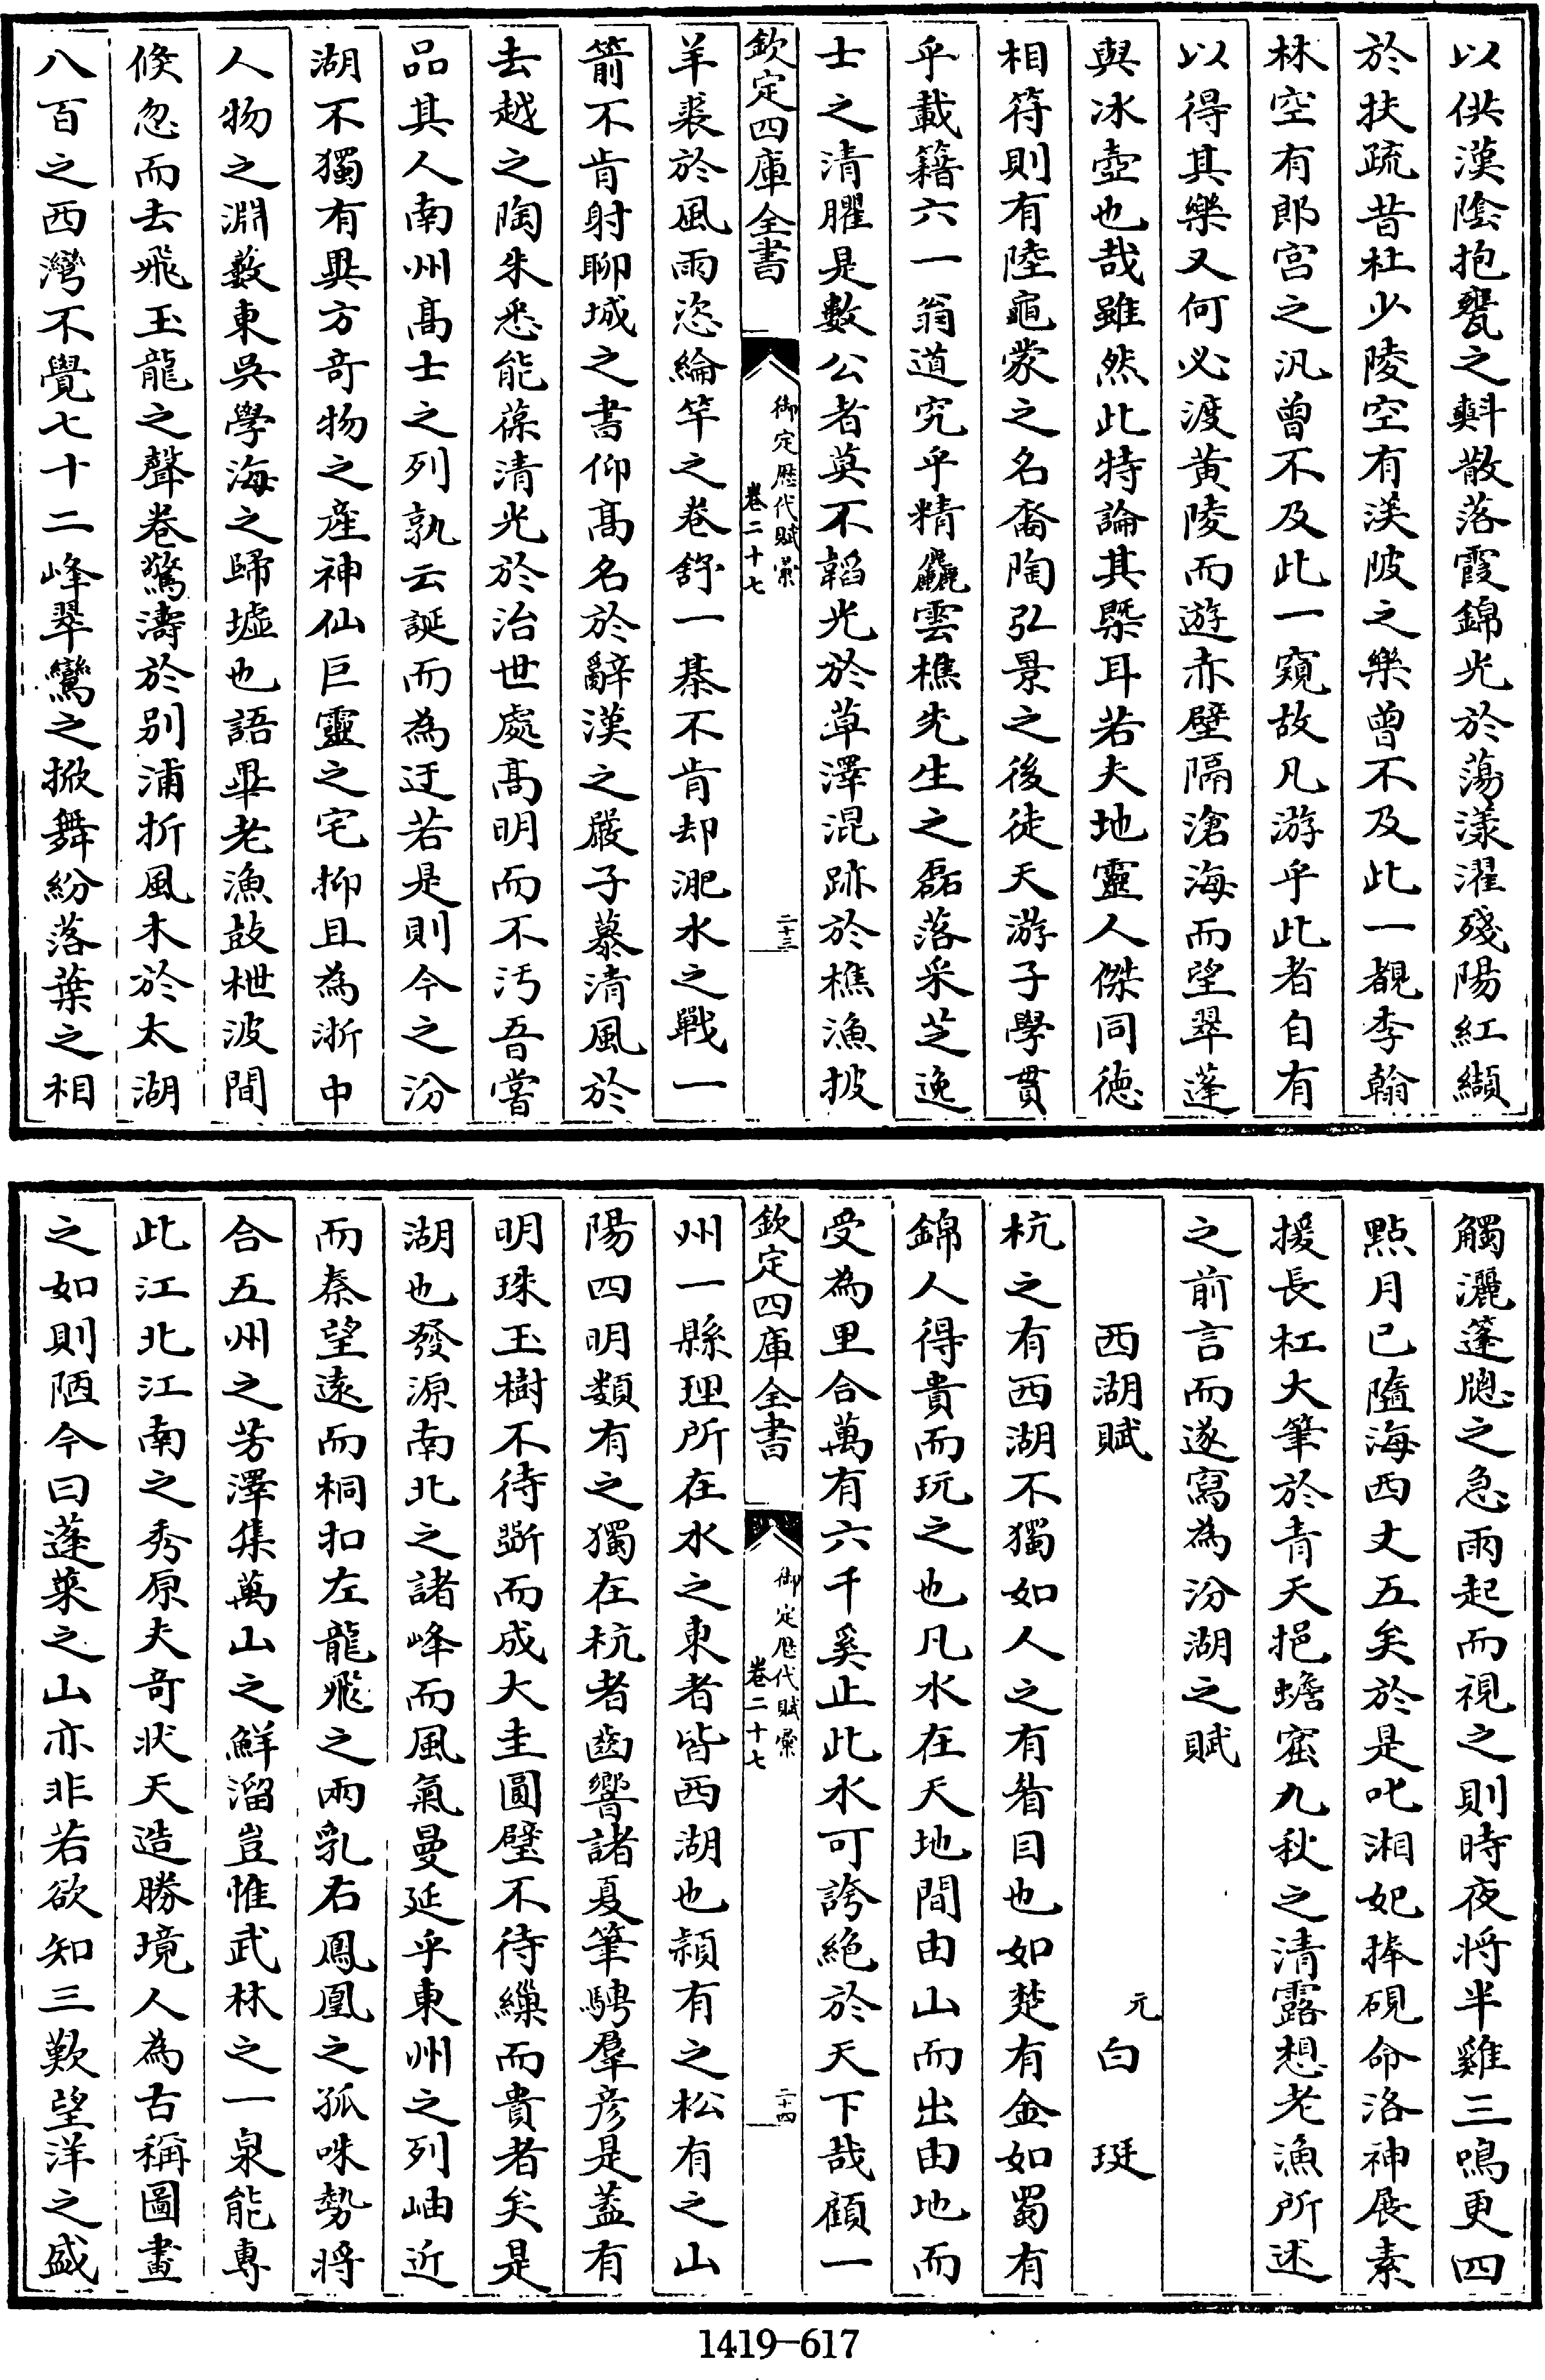 以供漢陰抱甕之㪺散落霞錦光於蕩漾濯殘陽紅纈
於扶疏昔杜少陵空有渼陂之樂曾不及此一覩李翰
林空有郎官之汎曾不及此一窺故凡游乎此者自有
以得其樂又何必渡黄陵而遊赤壁隔滄海而望翠蓬
與冰壺也哉雖然此特論其槩耳若夫地靈人傑同徳
相符則有陸龜蒙之名裔陶弘景之後徒天游子學貫
乎載籍六一翁道究乎精麤雲樵先生之磊落采芝逸
士之清臞是數公者莫不韜光於草澤混跡於樵漁披
欽定四庫全書
御定歴代賦彚
卷二十七
二十三
羊裘於風雨恣綸竿之卷舒一棊不肯却淝水之戰一
箭不肯射聊城之書仰髙名於辭漢之嚴子慕清風於
去越之陶朱悉能葆清光於治世處髙明而不汚吾嘗
品其人南州髙士之列孰云誕而為迂若是則今之汾
湖不獨有異方竒物之產神仙巨靈之宅抑且為浙中
人物之淵藪東吳學海之歸墟也語畢老漁鼓枻波間
倐忽而去飛玉龍之聲卷驚濤於别浦折風木於太湖
八百之西灣不覺七十二峰翠鸞之掀舞紛落葉之相
觸灑篷牕之急雨起而視之則時夜将半雞三鳴更四
㸃月已隨海西丈五矣於是叱湘妃捧硯命洛神展素
援長杠大筆於青天挹蟾窟九秋之清露想老漁所述
之前言而遂寫為汾湖之賦
西湖賦
元白珽
杭之有西湖不獨如人之有眉目也如楚有金如蜀有
錦人得貴而玩之也凡水在天地間由山而出由地而
受為里合萬有六千奚止此水可誇絶於天下哉顧一
欽定四庫全書
御定歴代賦彚
卷二十七
二十四
州一縣理所在水之東者皆西湖也潁有之松有之山
陽四明類有之獨在杭者齒響諸夏筆騁羣彦是蓋有
明珠玉樹不待斲而成大圭圓璧不待繅而貴者矣是
湖也發源南北之諸峰而風氣曼延乎東州之列岫近
而秦望遠而桐扣左龍飛之兩乳右鳳凰之孤咮勢将
合五州之芳澤集萬山之鮮溜豈惟武林之一泉能專
此江北江南之秀原夫竒狀天造勝境人為古稱圖畫
之如則陋今曰蓬萊之山亦非若欲知三歎望洋之盛
1419—617